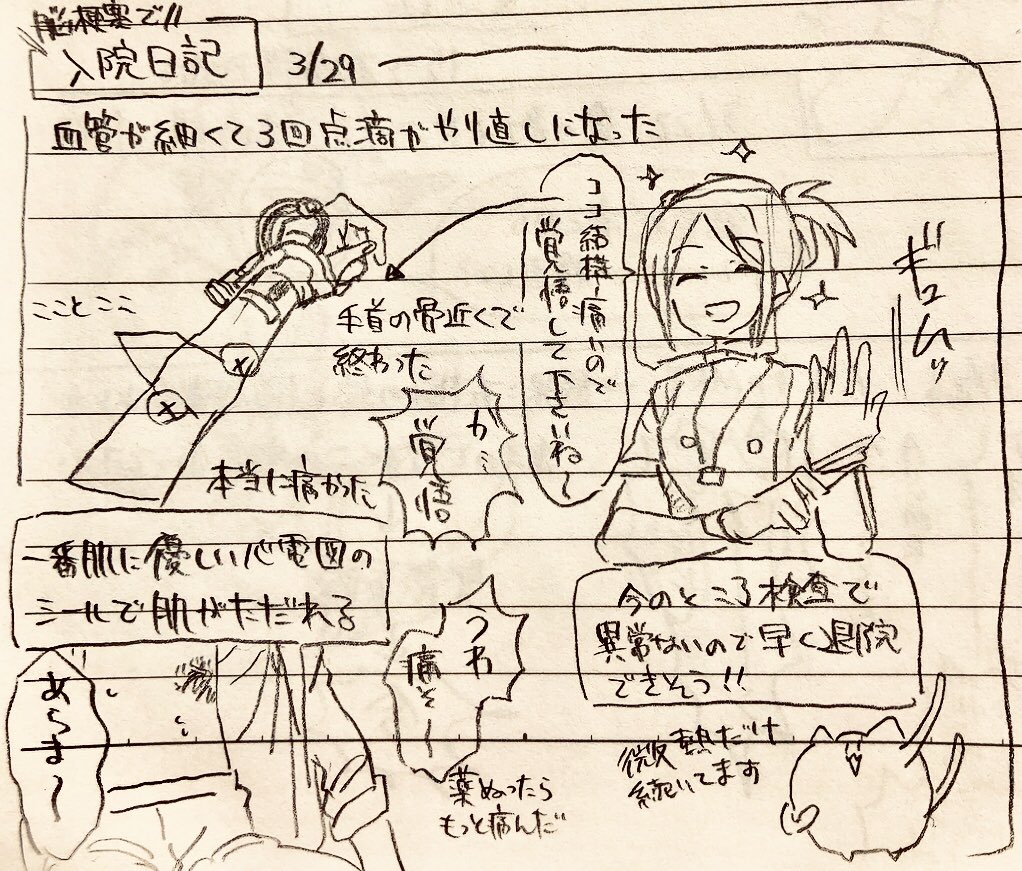 脳梗塞で!!
入院日記
3/29
血管が細くて3回点滴がやり直しになった
ココ結構痛いので
覚悟して下さいね〜
ギュムッ
こことここ
手首の骨近くで
終わった
か…
覚悟
本当に痛かった
一番肌に優しい心電図の
シールで肌がただれる
あらま〜
うわ
痛そ〜
薬ぬったら
もっと痛んだ
今のところ検査で
異常ないので早く退院
できそう!!
微熱だけ
続いてます